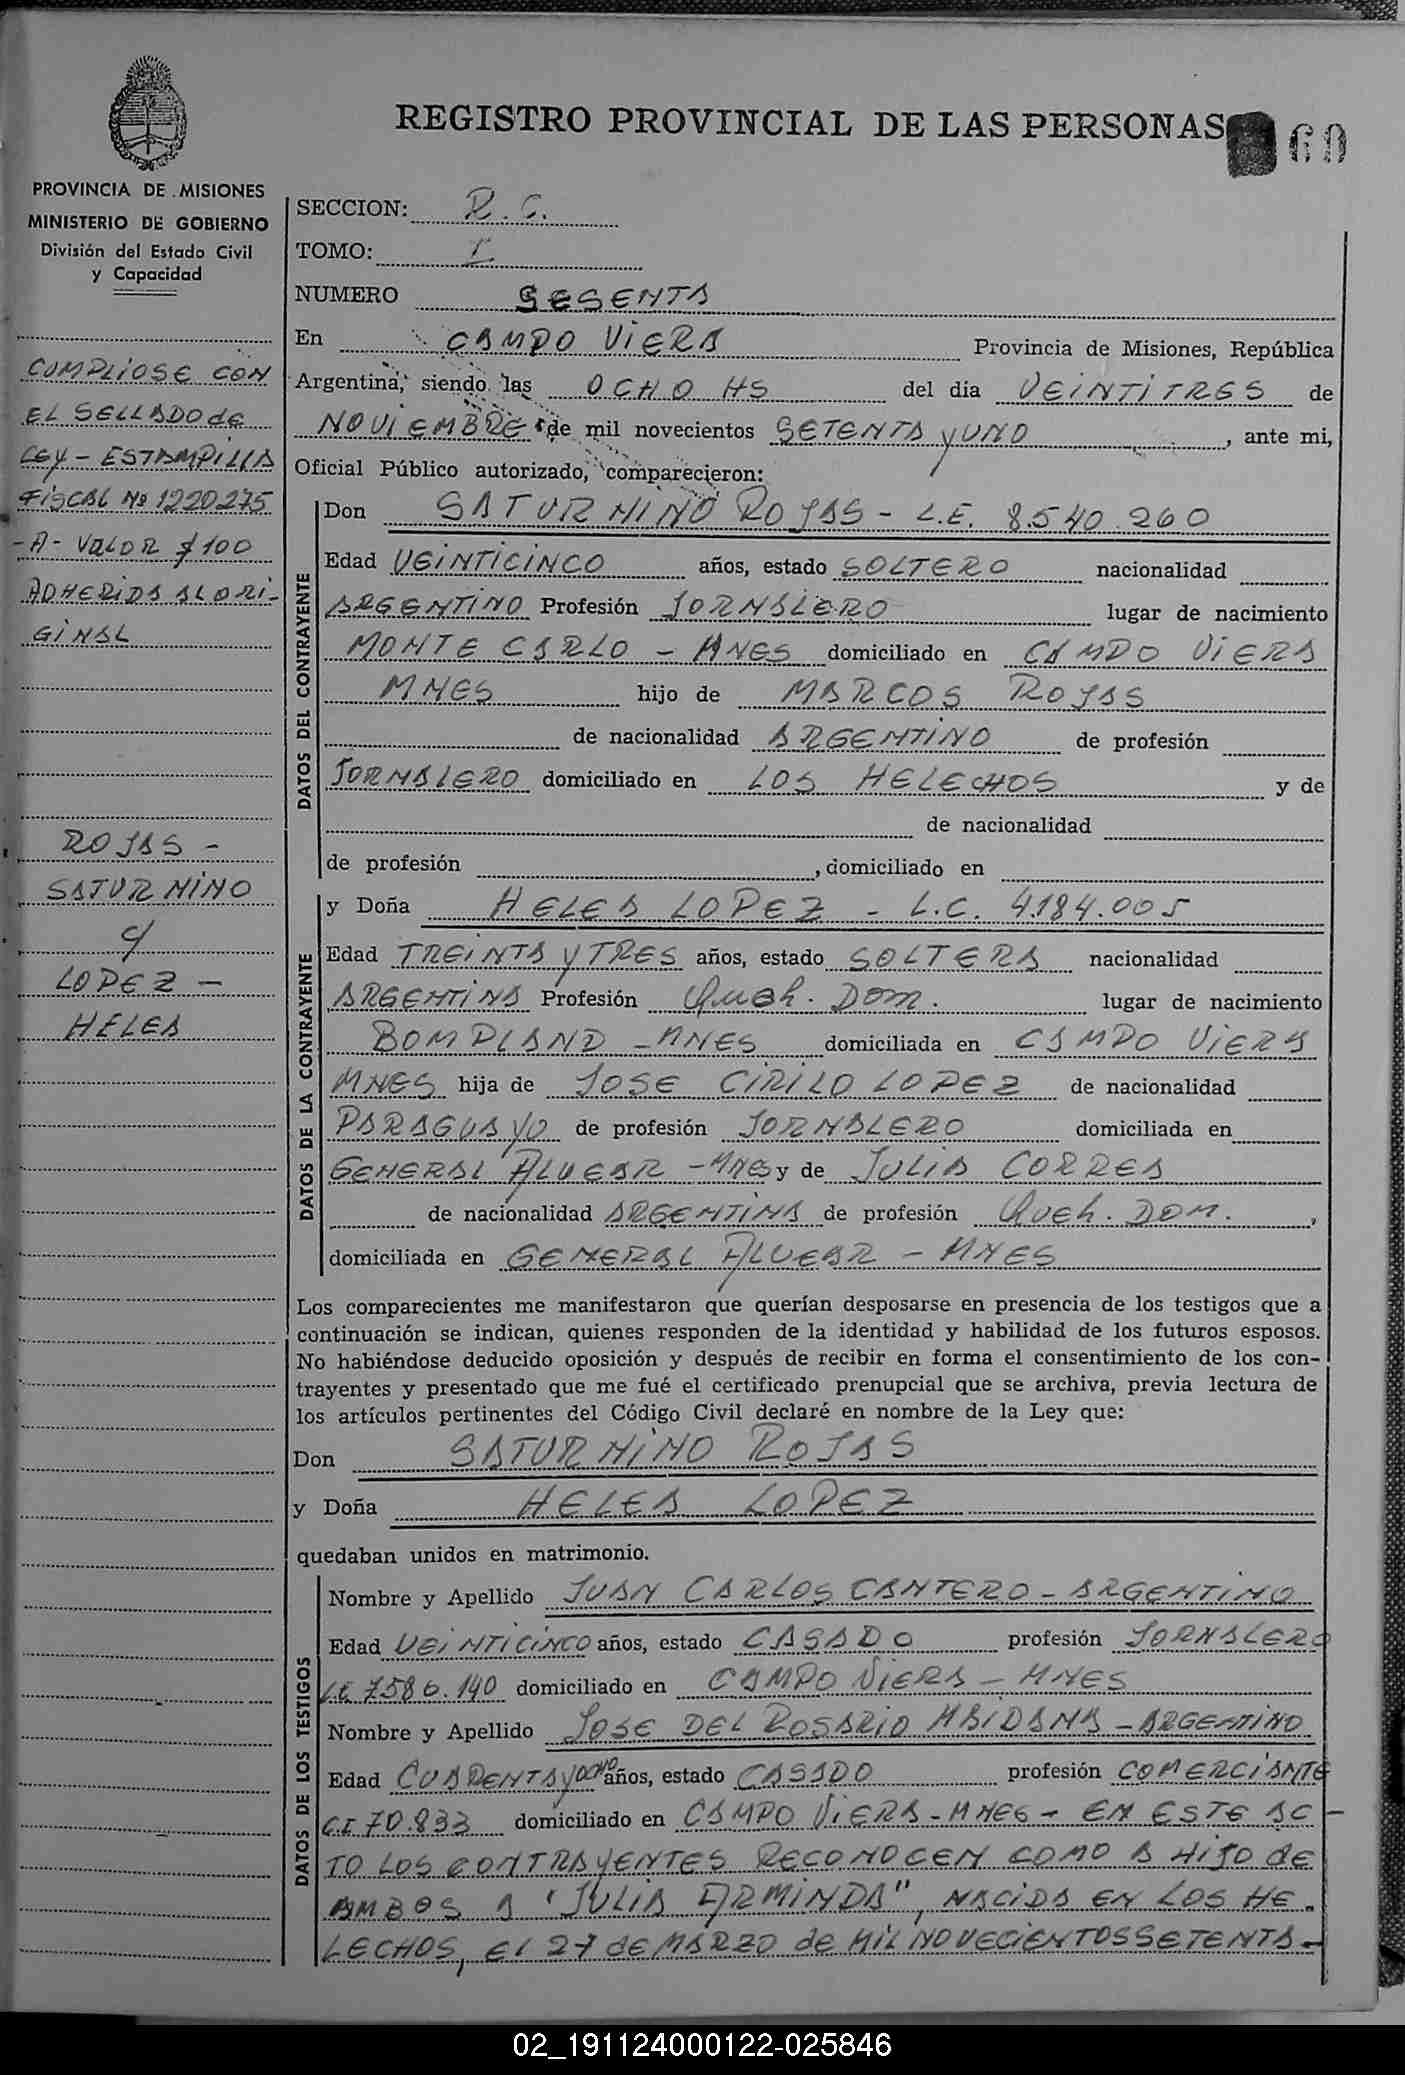 REGISTRO PROVINCIAL DE LAS PERSONAS
60
PROVINCIA DE MISIONES
MINISTERIO DE GOBIERNO
División del Estado Civil
y Capacidad
CUMPLIOSE CON
EL SELLADO de
LEY - ESTAMPILLA
FISCAL Nº 1220275
- A - VALOR $ 100
ADHERIDA AL ORI-
GINAL
ROJAS -
SATURNINO
c/
LOPEZ -
HELEA
SECCION: R. C.
TOMO: I
NUMERO SESENTA
En CAMPO VIERA Provincia de Misiones, República
Argentina, siendo las OCHO HS del día VEINTITRES de
NOVIEMBRE de mil novecientos SETENTA y UNO, ante mi,
Oficial Público autorizado, comparecieron:
DATOS DEL CONTRAYENTE
Don SATURNINO ROJAS - L.E. 8.540.260
Edad VEINTICINCO años, estado SOLTERO nacionalidad
ARGENTINO Profesión JORNALERO lugar de nacimiento
MONTE CARLO - MNES domiciliado en CAMPO VIERA
MNES hijo de MARCOS ROJAS
de nacionalidad ARGENTINO de profesión
JORNALERO domiciliado en LOS HELECHOS y de
de nacionalidad
de profesión , domiciliado en
DATOS DE LA CONTRAYENTE
y Doña HELEA LOPEZ - L.C. 4.184.005
Edad TREINTA y TRES años, estado SOLTERA nacionalidad
ARGENTINA Profesión Queh. DOM. lugar de nacimiento
BOMPLAND - MNES domiciliada en CAMPO VIERA
MNES hija de JOSE CIRILO LOPEZ de nacionalidad
PARAGUAYO de profesión JORNALERO domiciliada en
GENERAL ALVEAR - MNES y de JULIA CORREA
de nacionalidad ARGENTINA de profesión Queh. DOM.,
domiciliada en GENERAL ALVEAR - MNES
Los comparecientes me manifestaron que querían desposarse en presencia de los testigos que a
continuación se indican, quienes responden de la identidad y habilidad de los futuros esposos.
No habiéndose deducido oposición y después de recibir en forma el consentimiento de los con-
trayentes y presentado que me fué el certificado prenupcial que se archiva, previa lectura de
los artículos pertinentes del Código Civil declaré en nombre de la Ley que:
Don SATURNINO ROJAS
y Doña HELEA LOPEZ
quedaban unidos en matrimonio.
DATOS DE LOS TESTIGOS
Nombre y Apellido JUAN CARLOS CANTERO - ARGENTINO
Edad VEINTICINCO años, estado CASADO profesión JORNALERO
LE 7.586.140 domiciliado en CAMPO VIERA - MNES
Nombre y Apellido JOSE DEL ROSARIO MAIDANA - ARGENTINO
Edad CUARENTA y OCHO años, estado CASADO profesión COMERCIANTE
C.I 70.833 domiciliado en CAMPO VIERA - MNES - EN ESTE AC-
TO LOS CONTRAYENTES RECONOCEN COMO A HIJO de
AMBOS A "JULIA ARMINDA", NACIDA EN LOS HE-
LECHOS, EL 27 de MARZO de MIL NOVECIENTOS SETENTA -
02_191124000122-025846